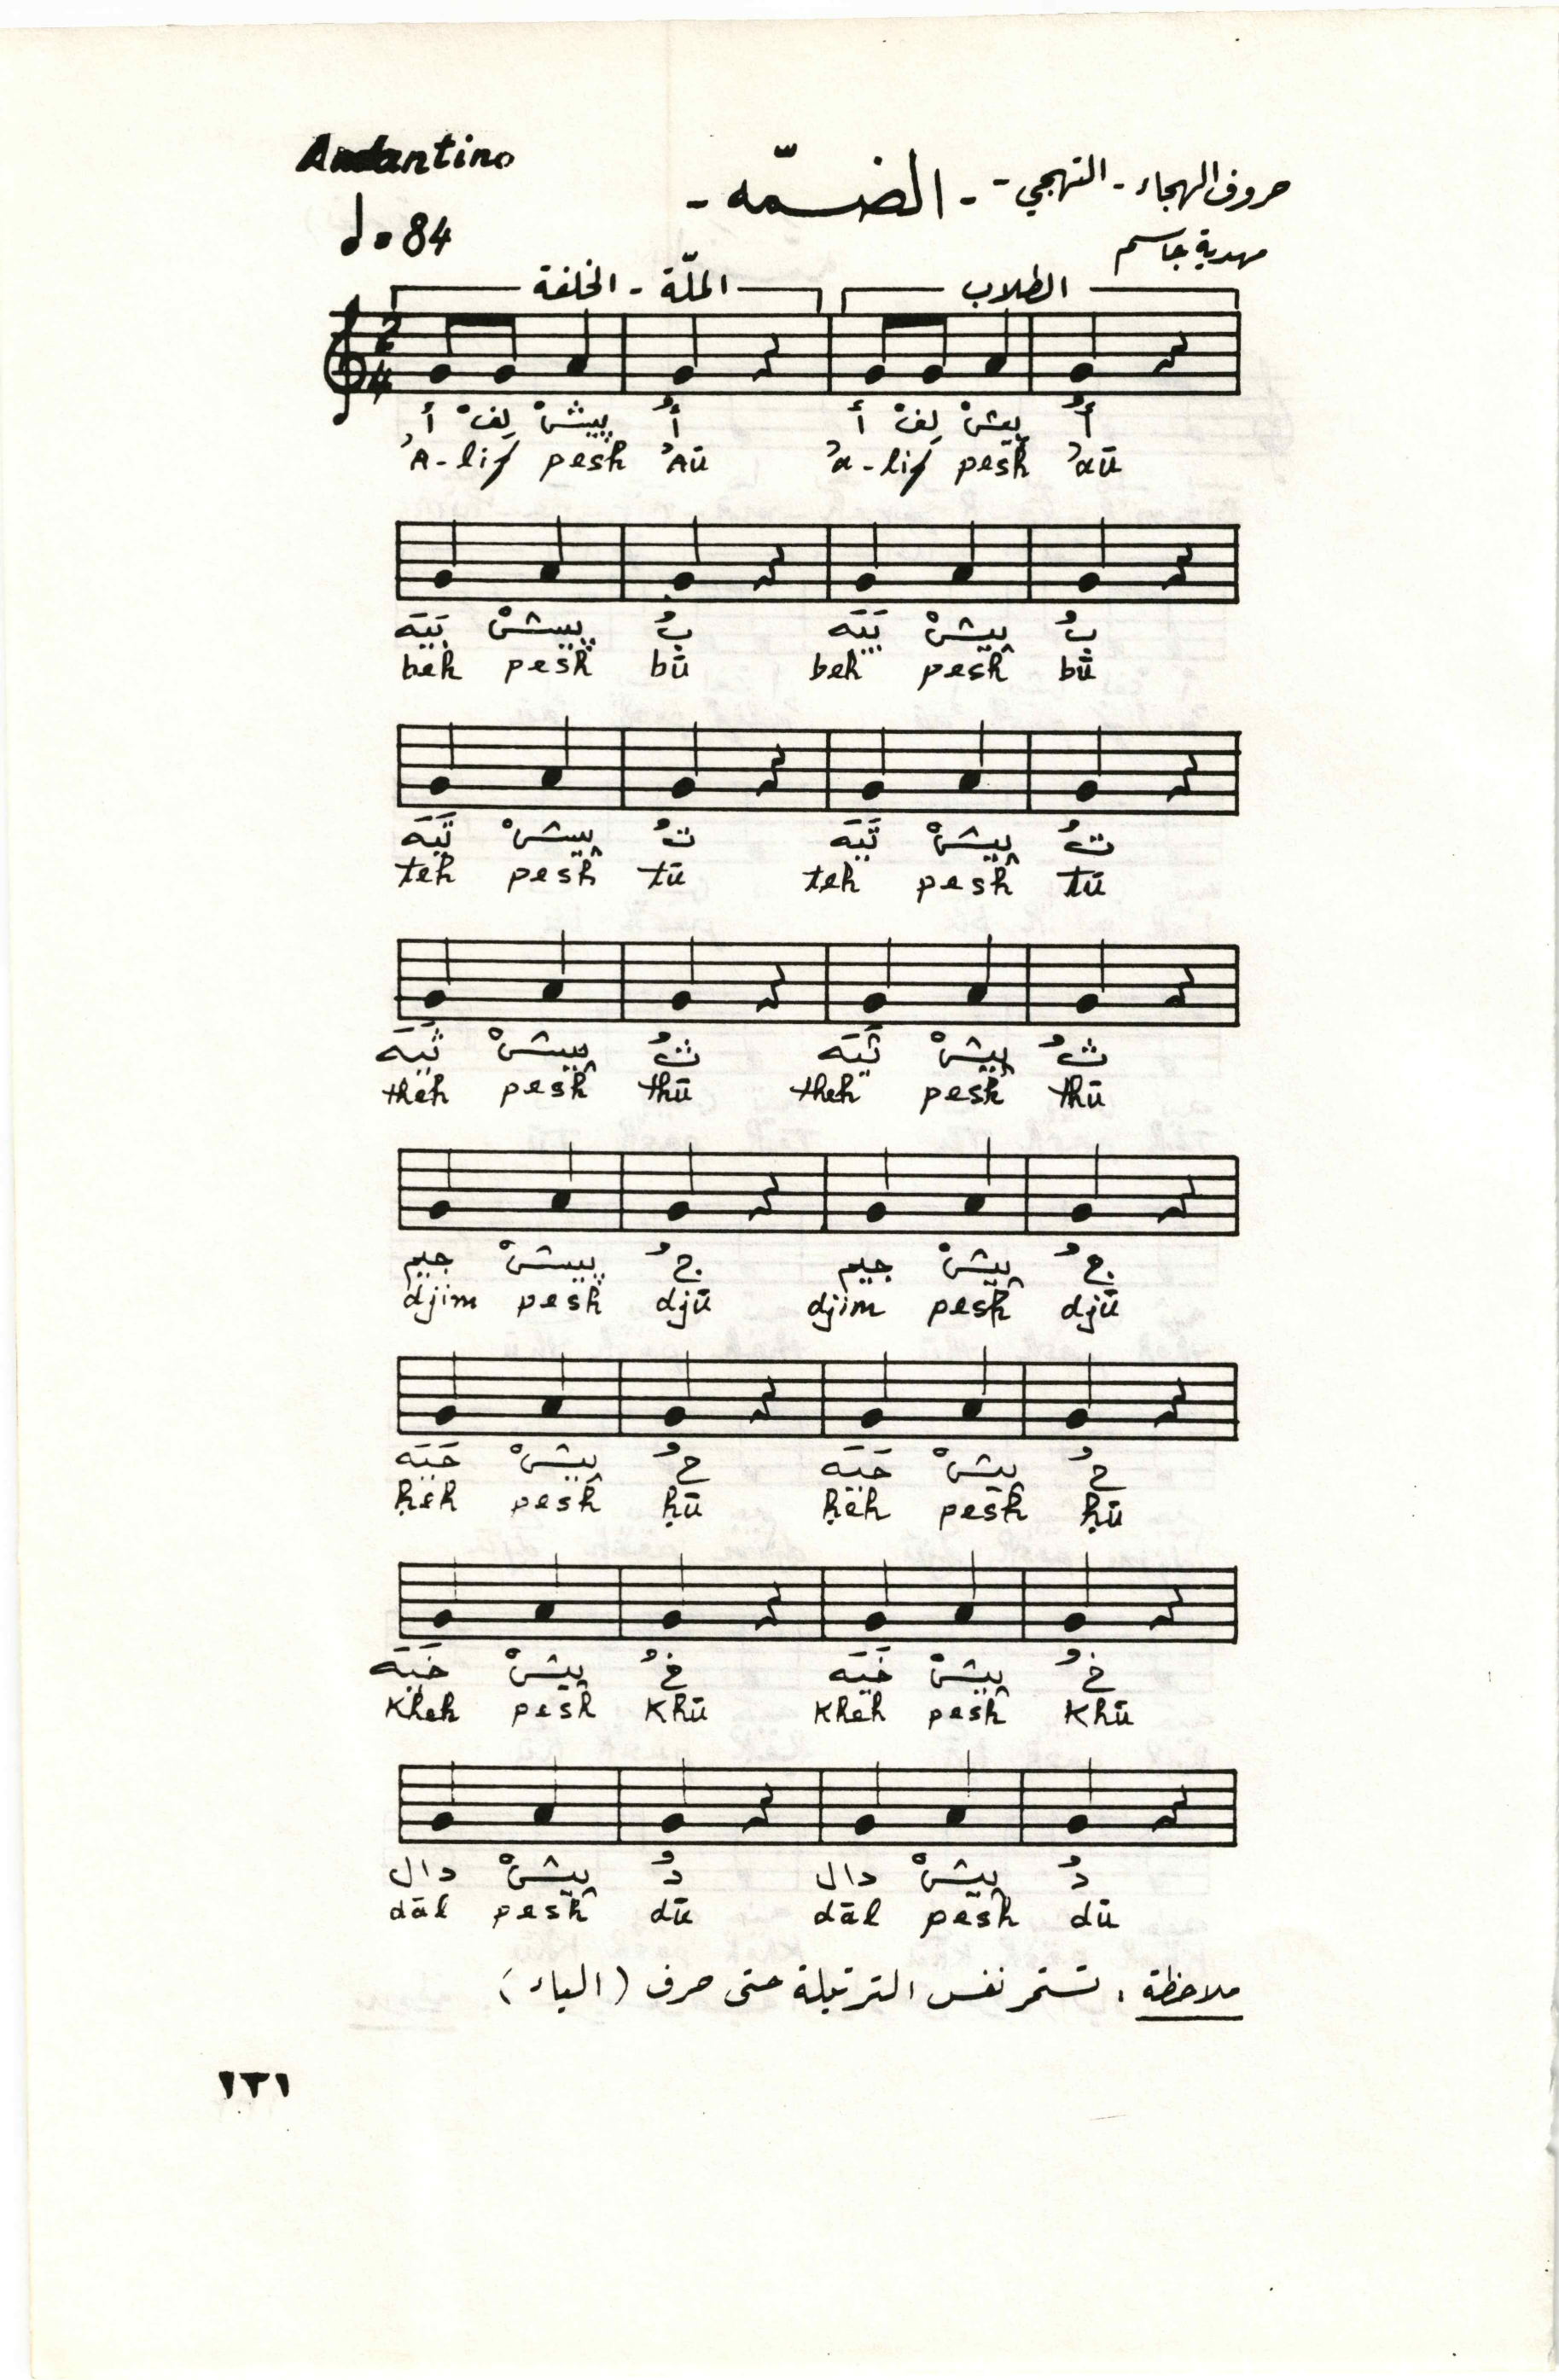 Andantino
حروف الهجاء - التهجي - - الضسمّه -
♩ = 84
مهدية جاسم
الملّة - الخلفة الطلاب
2
4
أ لِفْ پيشْ أُ أ لِفْ پيشْ أُ
'A-lif pesh 'Aū 'a-lif pesh 'aū
بَيَه پيشْ بُ بَيَه پيشْ بُ
beh pesh bū beh pesh bū
تَيَه پيشْ تُ تَيَه پيشْ تُ
teh pesh tū teh pesh tū
ثَيَه پيشْ ثُ ثَيَه پيشْ ثُ
theh pesh thū theh pesh thū
جيم پيشْ جُ جيم پيشْ جُ
djim pesh djū djim pesh djū
حَيَه پيشْ حُ حَيَه پيشْ حُ
ḥeh pesh ḥū ḥeh pesh ḥū
خَيَه پيشْ خُ خَيَه پيشْ خُ
Kheh pesh Khū Kheh pesh Khū
دال پيشْ دُ دال پيشْ دُ
dāl pesh dū dāl pesh dū
ملاحظة : تستمر نفس الترتيلة حتى حرف (الياء)
١٣١